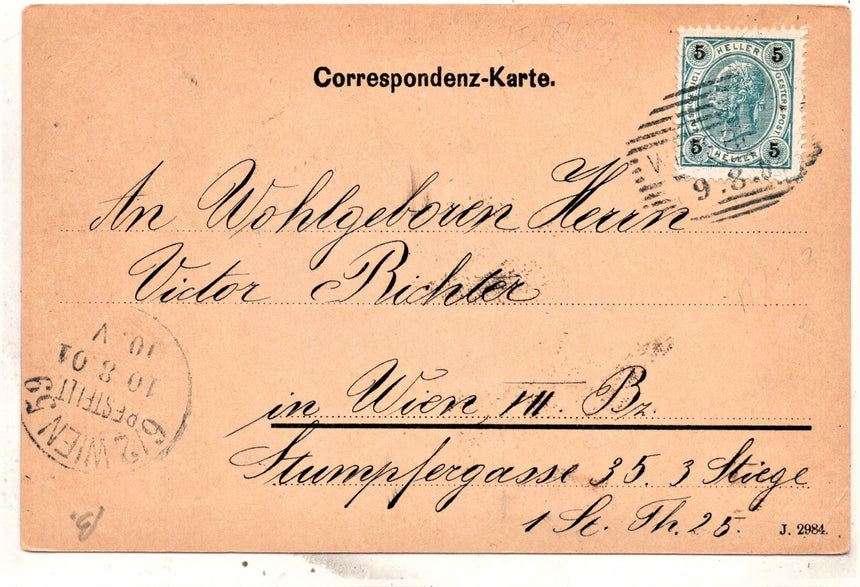 Correspondenz-Karte.
5 HELLER 5
5 HELLER 5
9.8.
An Wohlgeboren Herrn
Victor Richter
in Wien, VII. Bz.
Stumpfergasse 35. 3 Stiege
1 St. Th. 25.
6/2 WIEN 59
BESTELLT
10.8.01
10.V
B.
J. 2984.